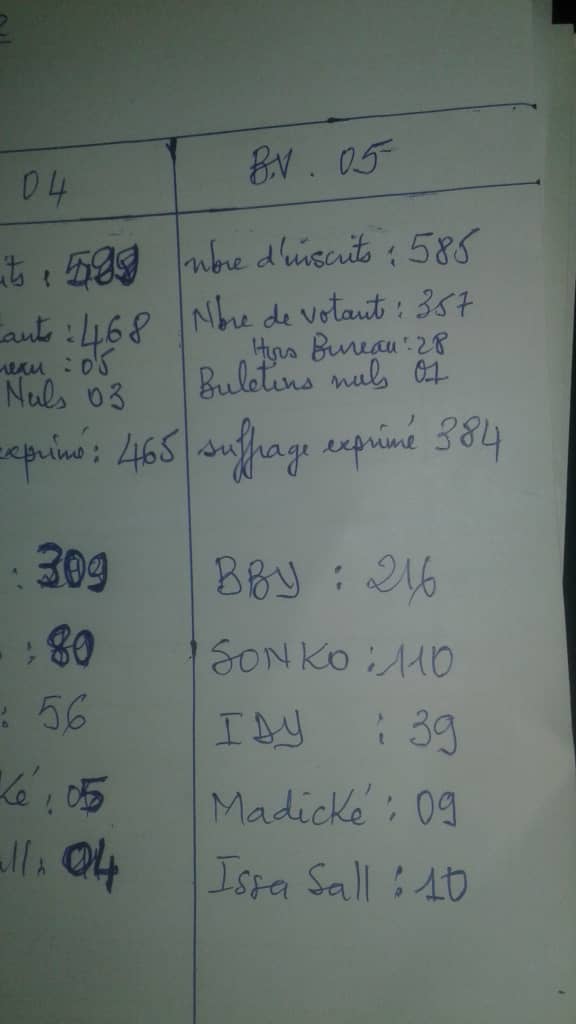 04
its :
tants : 468
reau : 05
Nuls 03
exprimé : 465
: 309
: 80
: 56
Ké : 05
all : 04
B.V. 05
nbre d'inscrits : 585
Nbre de votant : 357
Hors Bureau : 28
Buletins nuls 01
suffrage exprimé 384
BBY : 216
SONKO : 110
IDY : 39
Madické : 09
Issa Sall : 10